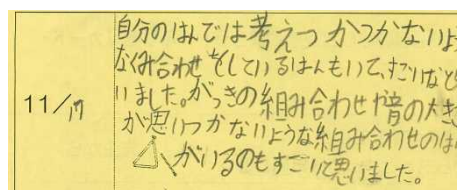 自分のはんでは考えつかつかないよ
なくみ合わせをしているはんもいて、すごいなと
11/17
いました。がっきの組み合わせや音の大き
が思いつかないような組み合わせのは
がいるのもすごいて思いました。